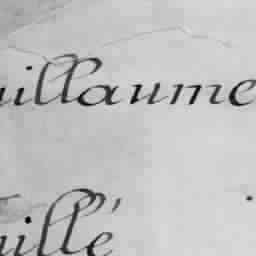 uillaume
uillé